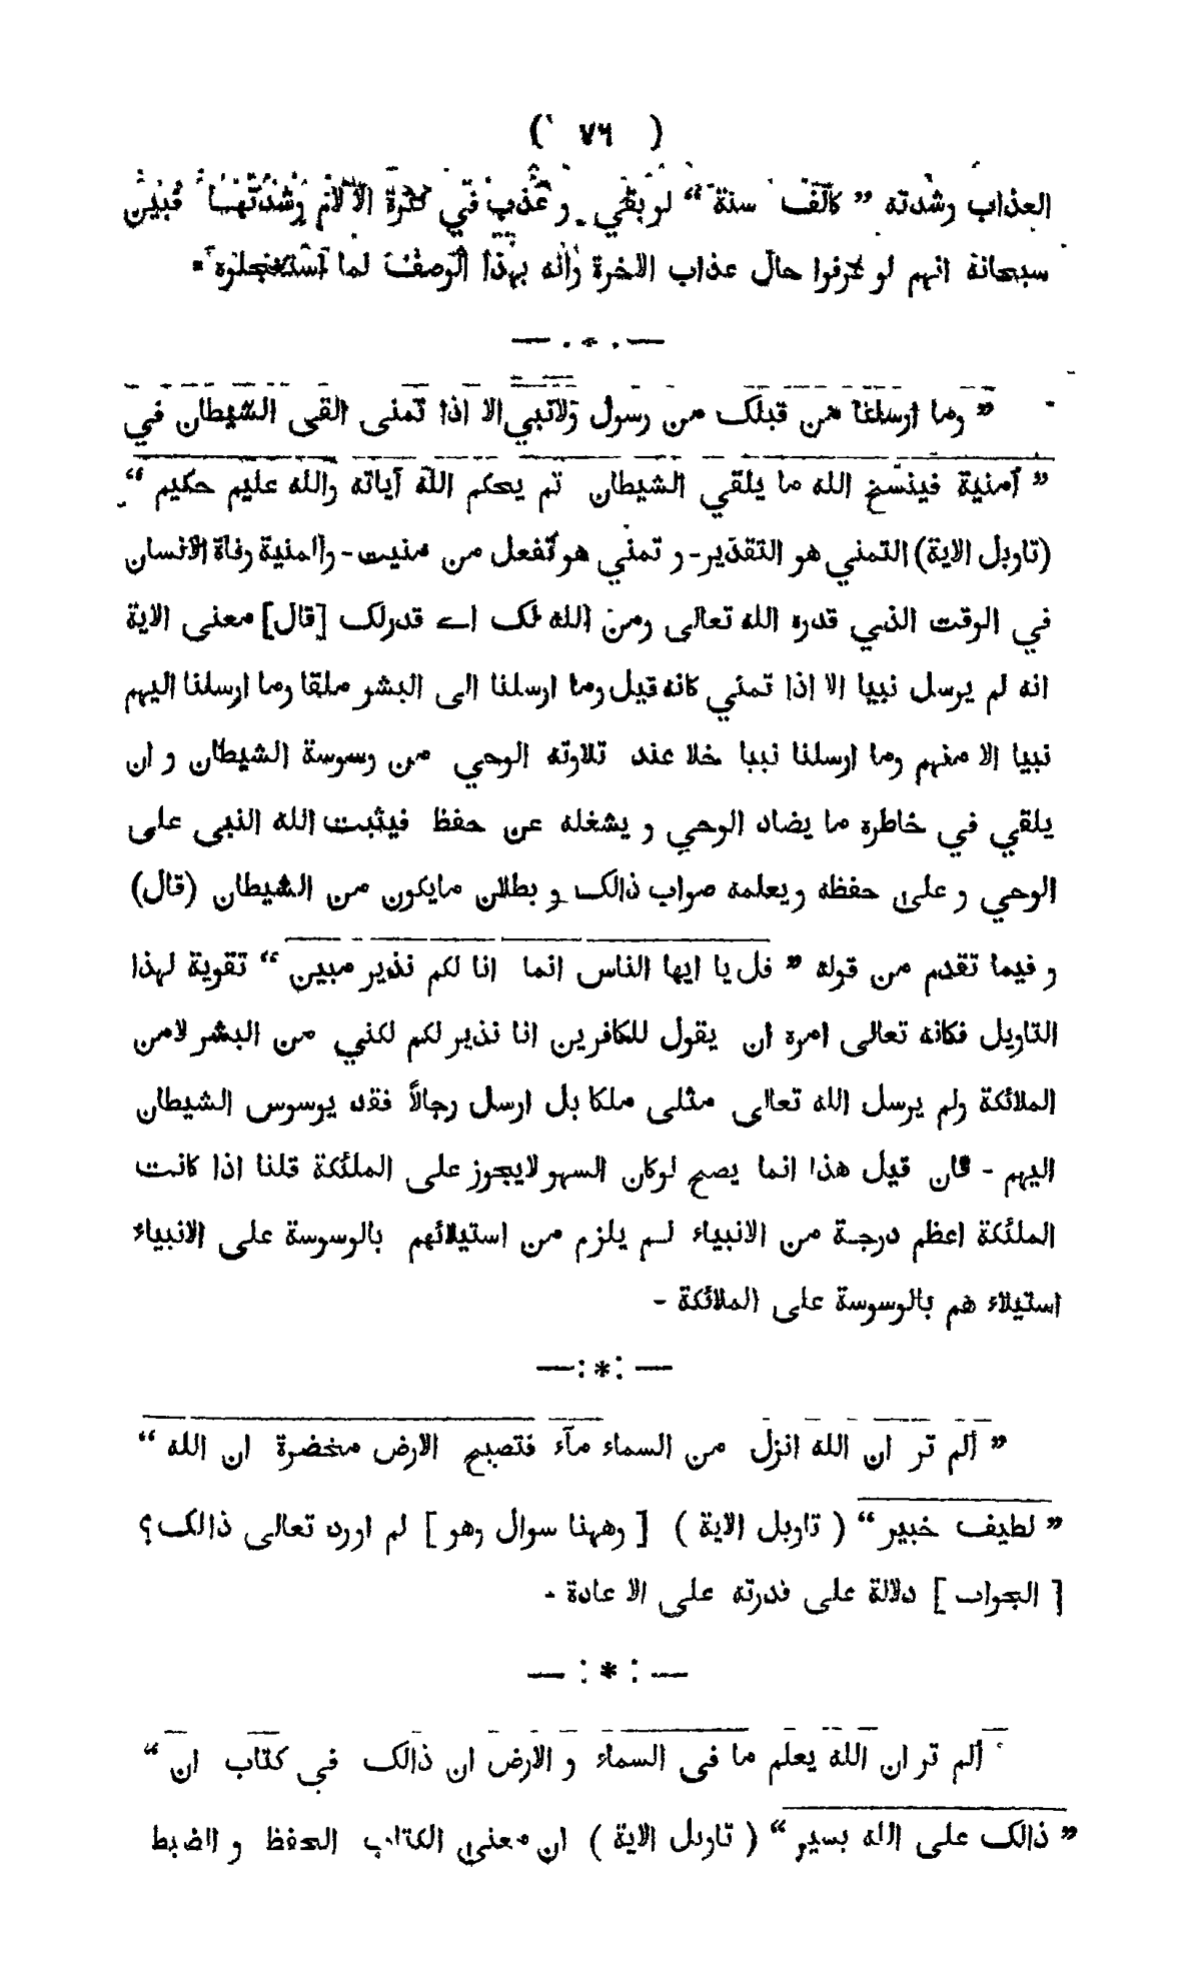 ( ٧٦ )
العذاب وشدته ” كألف سنة “ لو بقي و عُذب في كثرة الآلام وشدتها فبين
سبحانه انهم لو عرفوا حال عذاب الاخرة وانه بهذا الوصف لما استعجلوه -
— . * . —
” وما ارسلنا من قبلک من رسول ولانبي الا اذا تمنى القى الشيطان في
” أمنية فينسخ الله ما يلقي الشيطان ثم يحكم الله آياته والله عليم حكيم “
(تاويل الاية) التمني هو التقدير - و تمني هو تفعل من منيت - والمنية وفاة الانسان
في الوقت الذي قدره الله تعالى ومن الله لک اے قدرلک [قال] معنى الاية
انه لم يرسل نبيا الا اذا تمني كانه قيل وما ارسلنا الى البشر ملقا وما ارسلنا اليهم
نبيا الا منهم وما ارسلنا نبيا خلا عند تلاوته الوحي من وسوسة الشيطان و ان
يلقي في خاطره ما يضاد الوحي و يشغله عن حفظ فيثبت الله النبى على
الوحي و على حفظه ويعلمه صواب ذالک و بطلان مايكون من الشيطان (قال)
و فيما تقدم من قوله ” قل يا ايها الناس انما انا لكم نذير مبين “ تقوية لهذا
التاويل فكانه تعالى امره ان يقول للكافرين انا نذير لكم لكني من البشر لامن
الملائكة ولم يرسل الله تعالى مثلى ملكا بل ارسل رجالاً فقد يوسوس الشيطان
اليهم - فان قيل هذا انما يصح لوكان السهو لايجوز على الملئكة قلنا اذا كانت
الملئكة اعظم درجة من الانبياء لم يلزم من استيلائهم بالوسوسة على الانبياء
استيلاء هم بالوسوسة على الملائكة -
— : * : —
” ألم تر ان الله انزل من السماء مآء فتصبح الارض مخضرة ان الله “
” لطيف خبير “ ( تاويل الاية ) [ وههنا سوال وهو ] لم اورد تعالى ذالک ؟
[ الجواب ] دلالة على قدرته على الا عادة -
— : * : —
ألم تر ان الله يعلم ما فى السماء و الارض ان ذالک في كتاب ان “
” ذالک على الله يسير “ ( تاويل الاية ) ان معنى الكتاب الحفظ و الضبط